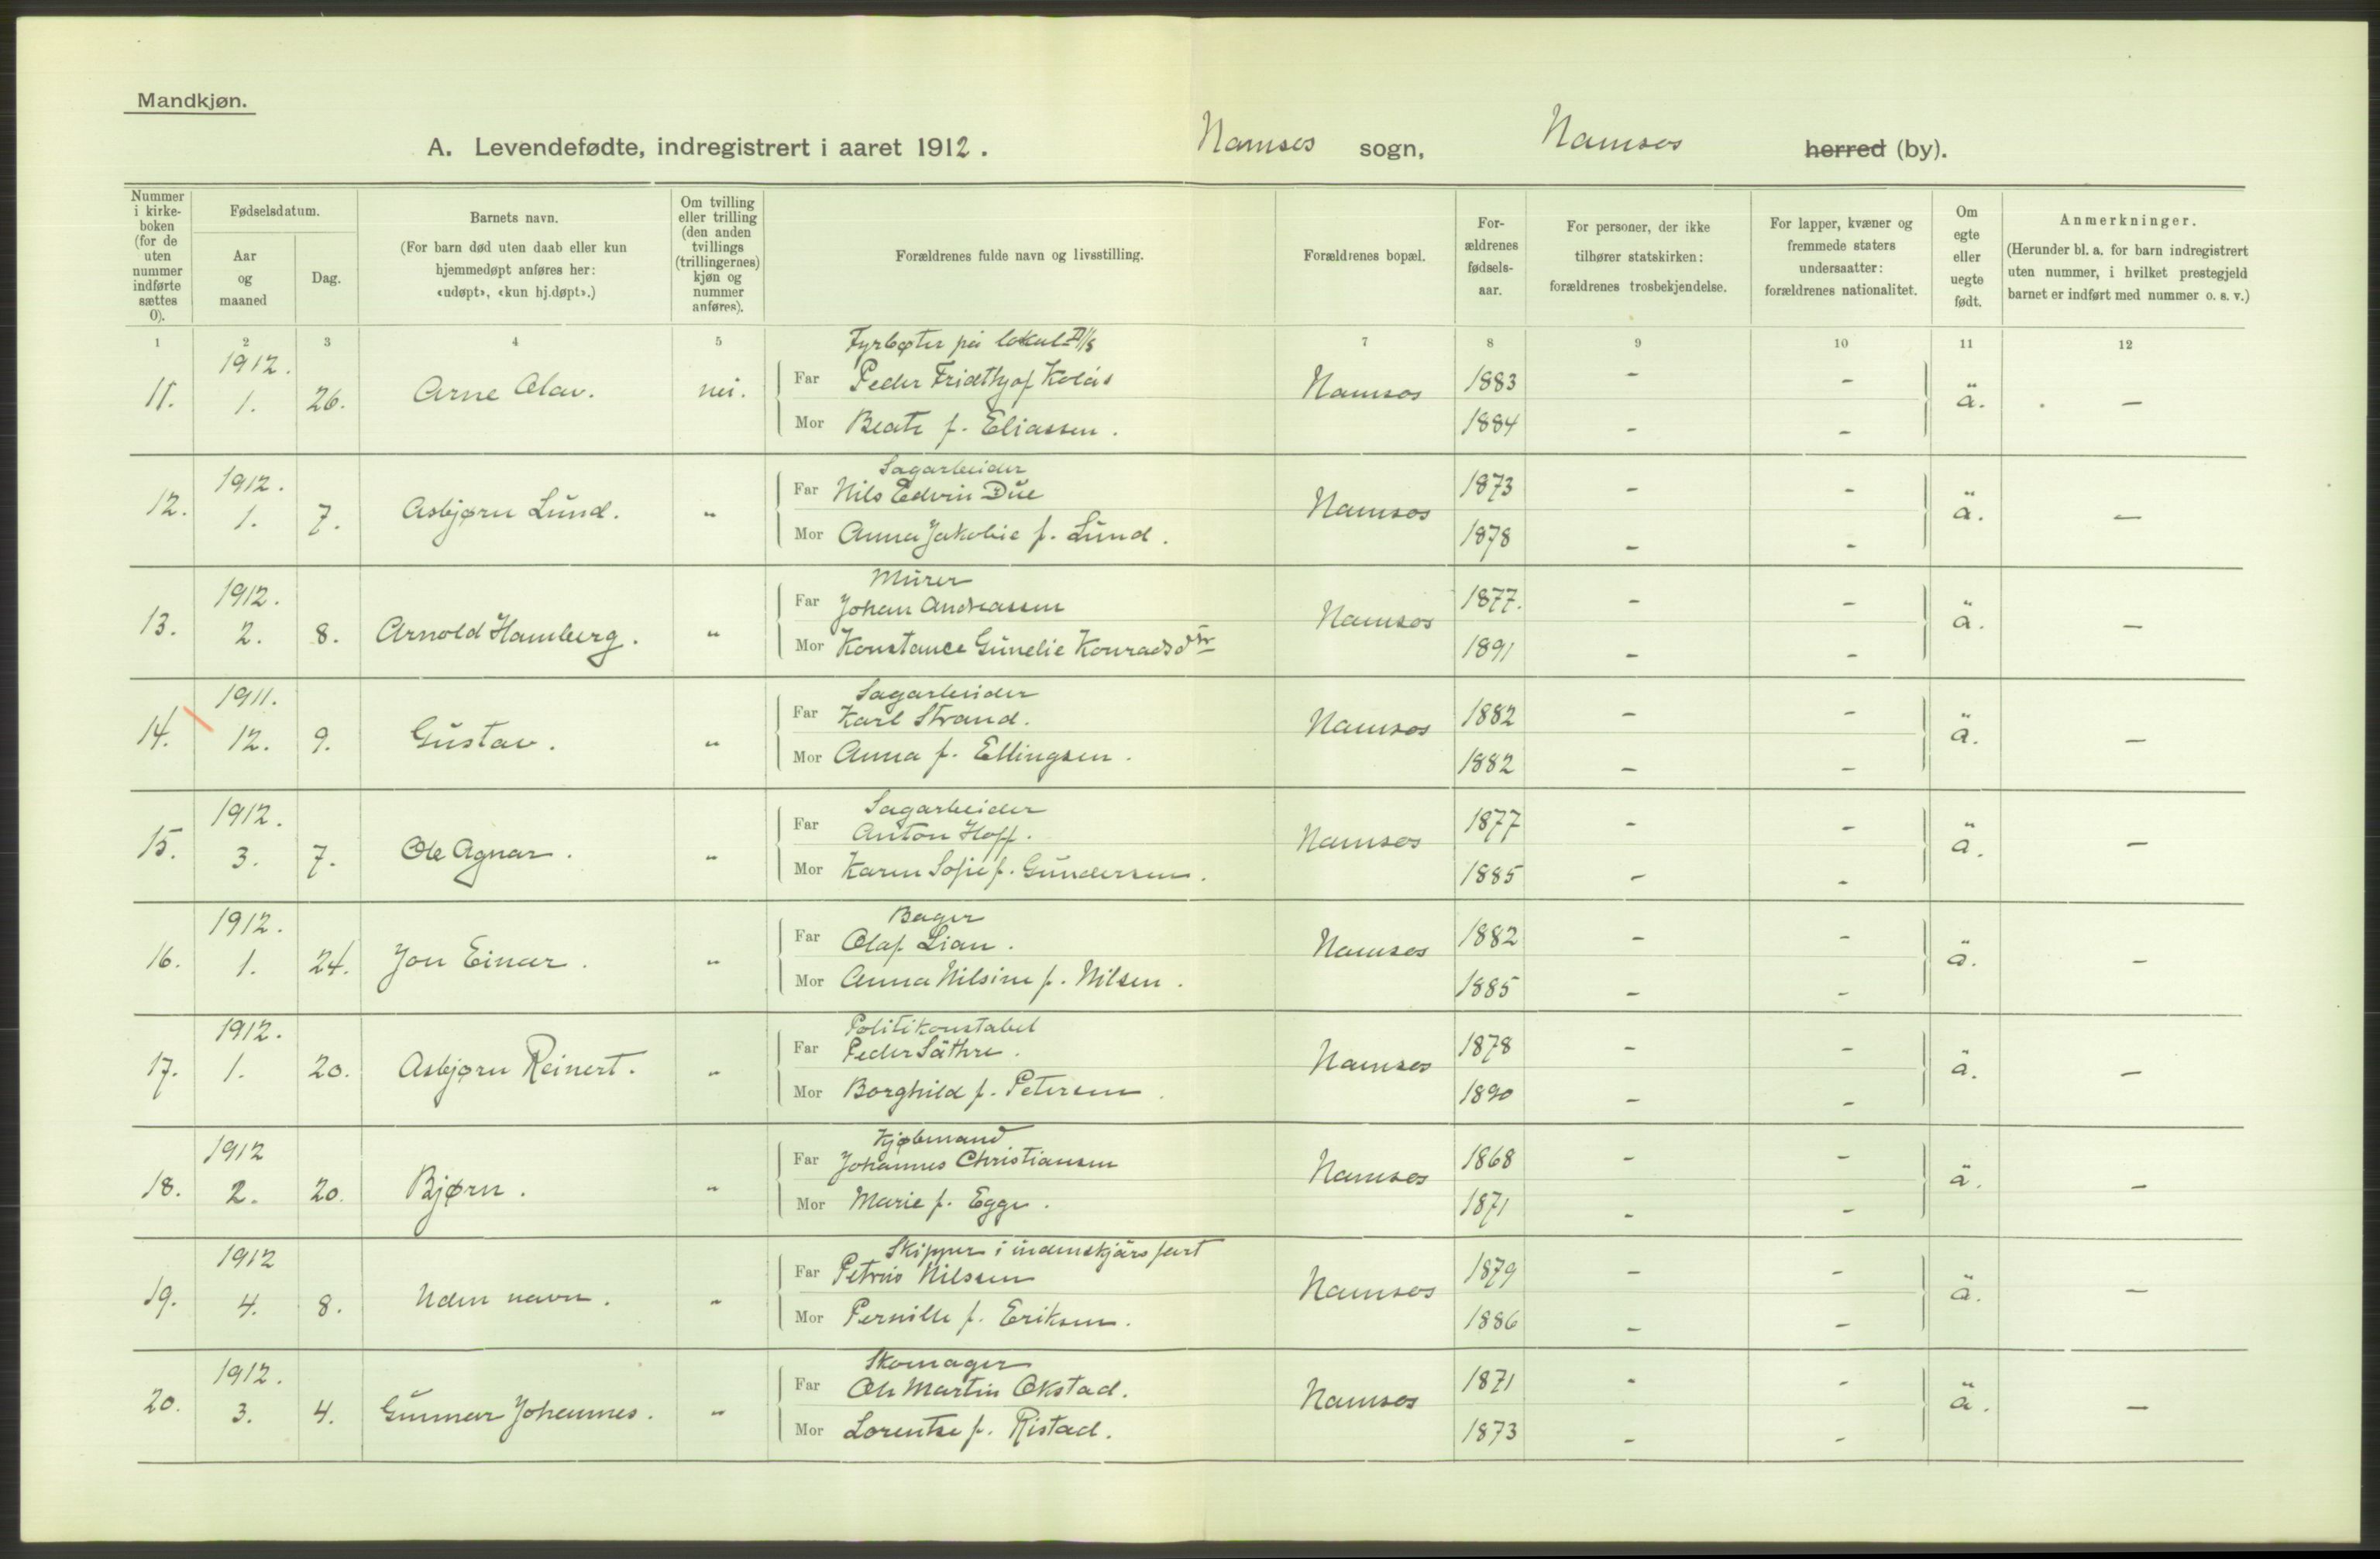 Mandkjøn.
A. Levendefødte, indregistrert i aaret 1912. Namsos sogn, Namsos herred (by).
Nummer i kirke-boken (for de uten nummer indførte sættes 0).
Fødselsdatum.
Aar og maaned
Dag.
Barnets navn.
(For barn død uten daab eller kun hjemmedøpt anføres her: «udøpt», «kun hj.døpt».)
Om tvilling eller trilling (den anden tvillings (trillingernes) kjøn og nummer anføres).
Forældrenes fulde navn og livsstilling.
Forældrenes bopæl.
For-ældrenes fødsels-aar.
For personer, der ikke tilhører statskirken: forældrenes trosbekjendelse.
For lapper, kvæner og fremmede staters undersaatter: forældrenes nationalitet.
Om egte eller uegte født.
Anmerkninger.
(Herunder bl. a. for barn indregistrert uten nummer, i hvilket prestegjeld barnet er indført med nummer o. s. v.)
1 2 3 4 5 7 8 9 10 11 12
Fyrbøter på lokal D/S
11. 1912. 1. 26. Arne Olav. nei. Far Peder Fridthjof Kolås Namsos 1883 - - ä. —
Mor Beate f. Eliassen. 1884 - -
Sagarbeider
12. 1912. 1. 7. Asbjørn Lund. " Far Nils Edvin Due Namsos 1873 - - ä. —
Mor Anna Jakobie f. Lund. 1878 - -
Murer
13. 1912. 2. 8. Arnold Hamberg. " Far Johan Andreassen Namsos 1877. - - ä. —
Mor Konstance Gunelie Konradsdtr 1891 - -
Sagarbeider
14. 1911. 12. 9. Gustav. " Far Karl Strand. Namsos 1882 - - ä. —
Mor Anna f. Ellingsen. 1882 - -
Sagarbeider
15. 1912. 3. 7. Ole Agnar. " Far Anton Hoff. Namsos 1877 - - ä. —
Mor Karen Sofie f. Gundersen. 1885 - -
Bager
16. 1912. 1. 24. Jon Einar. " Far Olaf Lian. Namsos 1882 - - ä. —
Mor Anna Nilsine f. Nilsen. 1885 - -
Politikonstabel
17. 1912. 1. 20. Asbjørn Reinert. " Far Peder Säthre. Namsos 1878 - - ä. —
Mor Borghild f. Petersen. 1890 - -
Kjøbmand
18. 1912 2. 20. Bjørn. " Far Johannes Christiansen Namsos 1868 - - ä. —
Mor Marie f. Egge. 1871 - -
Skipper i indenskjärs fart
19. 1912 4. 8. Uden navn. " Far Petrus Nilssen Namsos 1879 - - ä. —
Mor Pernille f. Eriksen. 1886 - -
Skomager
20. 1912. 3. 4. Gunnar Johannes. " Far Ole Martin Okstad. Namsos 1871 - - ä. —
Mor Lorentse f. Ristad. 1873 - -